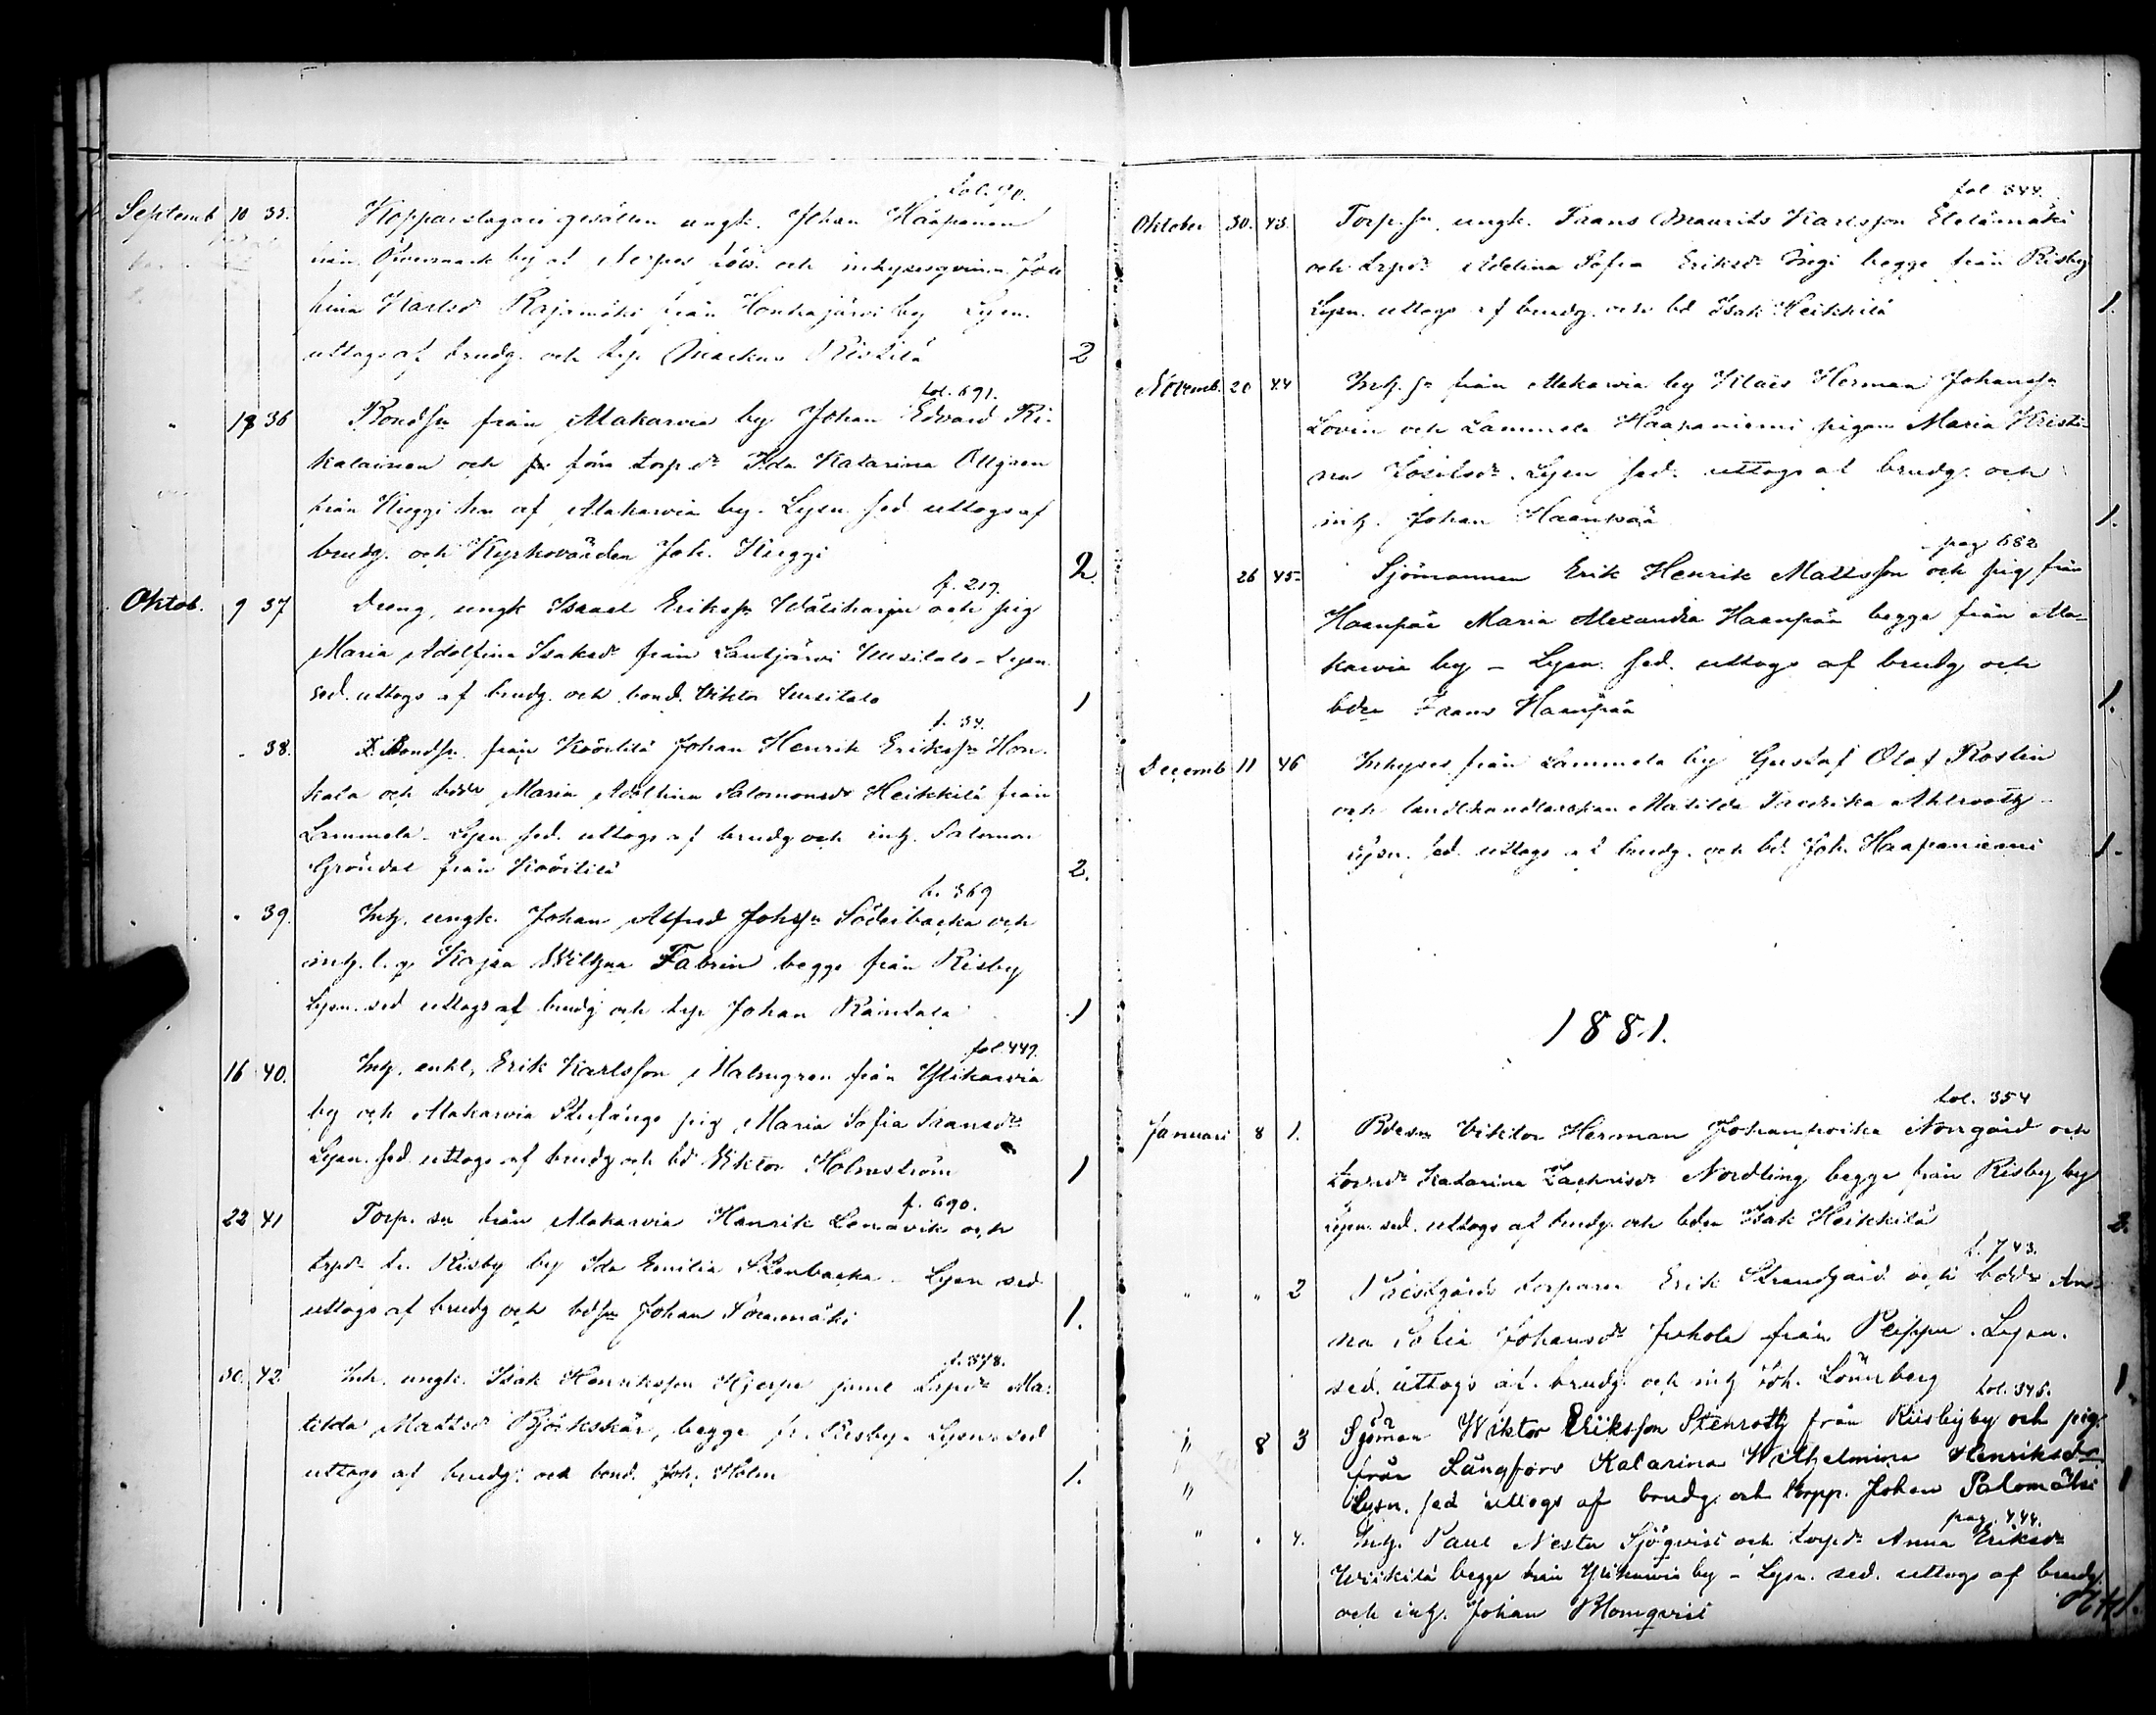 fol. 90.
Septemb 10 35. Kopparslagarigesällen ungk. Johan Haapanen
från Öfvermark by af Nerpes och inhysesqvinn. Jose
fina Karlsdr Rajamäki från Honkajärvi by Lysn.
uttogs af brudg. och trp Markus Ristilä 2
fol. 691.
" 18 36 Bondsn från Makarvia by Johan Edvard Ri-
kalainen och förra torpdr Ida Katarina Ollgren
från Kuggi hn af Makarvia by. Lysn. sed. uttogs af
brudg. och Kyrkovärden Joh. Kuggi 2.
f. 219.
Oktob. 9 37 Dreng, ungk Israel Eriksn Wäliharju och pig
Maria Adolfina Isaksdr från Lautjärvi Uusitalo - Lysn.
sed. uttogs af brudg. och bond. Viktor Uusitalo 1
f. 34.
" 38. Bondsn från Köörtilä Johan Henrik Eriksn Hon-
kala och bdr Maria Adolfina Salomonsdr Heikkilä från
Lammela - Lysn sed. uttogs af brudg och inh. Salomon
Gröndal från Köörtilä 2.
f. 369
" 39. Inh. ungk. Johan Alfred Johsn Söderbacka och
inh. l. q. Kajsa Wilhna Fabrin begge från Risby
Lysn. sed uttogs af brudg och trp Johan Rantala 1
fol 449.
16 40. Inh. enkl. Erik Karlsson Malmgren från Ylikarvia
by och Makarvia pig Maria Sofia Fransdr
Lysn. sed. uttogs af brudg och bd Viktor Holmström 1
f. 690.
22 41 Torp. sn från Makarvia Henrik Lenavik och
trpdr fr. Risby by Ida Emilia Stenbacka - Lysn sed
uttogs af brudg och bdsn Johan Söermäki 1.
f. 378.
30. 42. Inh. ungk. Isak Henriksson Hjerpe jemt trpdr Ma-
tilda Mattsdr Björkskär, begge fr. Risby - Lysn sed
uttogs af brudg. och bond. Joh. Holm 1.
fol 344.
Oktober 30. 43. Torp. sn, ungk. Frans Maurits Karlsson Etelämäki
och trpdr Adelina Sofia Eriksdr Ingi begge från Risby
Lysn. uttogs af brudg. och bd Isak Heikkilä 1.
Novemb. 20 44 Inh. sn från Makarvia by Klaes Herman Johansn
Lovén och Lammela Haapaniemi pigan Maria Kristi-
na Josefsdr. Lysn sed. uttogs af brudg. och
inh. Johan Haanpää 1.
pag 682
26 45 Sjömannen Erik Henrik Mattsson och pig från
Haanpää Maria Alexandra Haanpää begge från Ma-
karvia by - Lysn. sed. uttogs af brudg och
bdn Frans Haanpää 1.
Decemb 11 46 Inhyses från Lammela by Gustaf Olof Roslin
och landthandlerskan Matilda Fredrika Ahlroth -
Lysn. sed. uttogs af brudg. och bd. Joh. Haapaniemi 1.
1881.
fol. 354
Januari 8 1. Bdesn Viktor Herman Norrgård och
torpdr Katarina Zachrisdr Nordling begge från Risby by
Lysn. sed. uttogs af brudg. och bden Isak Heikkilä 2.
f. 743.
" " 2 Prestgårds torparen Erik Strandgård och bdr An-
na Sofia Johansdr Juhola från Peippu. Lysn.
sed. uttogs af. brudg. och inh Joh. Lönnberg 1
fol. 346.
" 8 3 Sjöman Wiktor Eriksson Stenroth från Riisbyby och pig.
från Långfors Katarina Wilhelmina Henriksdr
" Lysn. sed uttogs af brudg. och torpp. Johan Palomäki 1
pag. 444.
" " 4. Inh. Paul Nestor Sjöqvist och torpdr Anna Eriksdr
Wiikilä begge från Ylikarvia by - Lysn. sed. uttogs af brudg.
och inh. Johan Blomqvist 1.